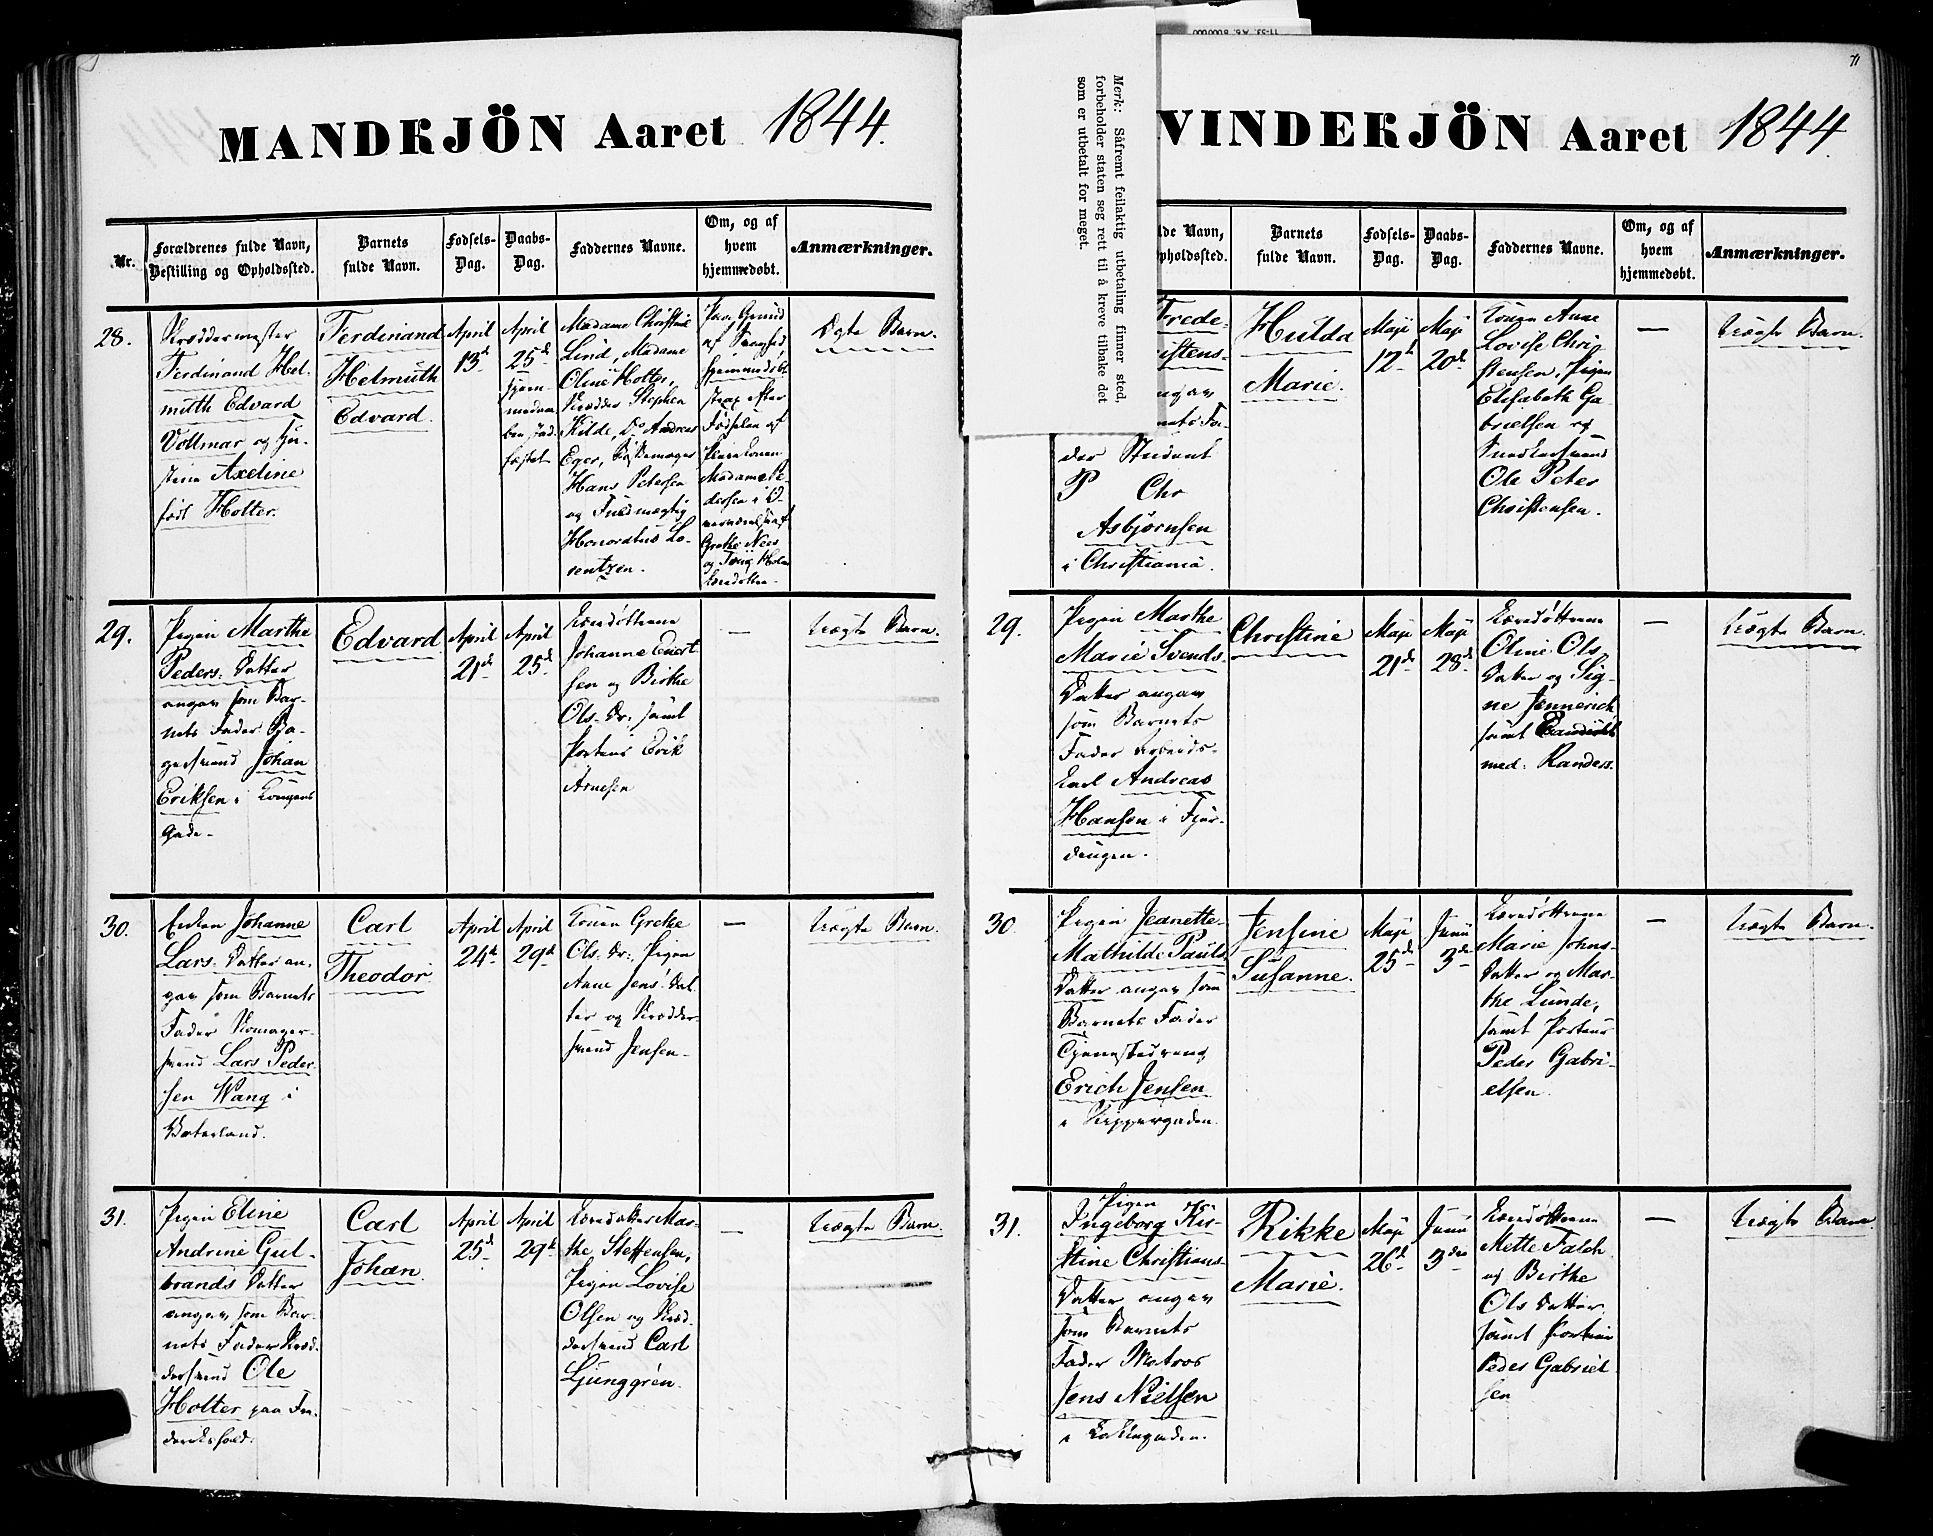 MANDKJÖN Aaret 1844.
Nr.
Forældrenes fulde Navn,
Bestilling og Opholdssted.
Barnets
fulde Navn.
Fødsels-
Dag.
Daabs-
Dag.
Faddernes Navne.
Om, og af
hvem
hjemmedøbt.
Anmærkninger.
28.
Skræddermester
Ferdinand Hel-
muth Edvard
Vollmar og Hu-
struе Axeline
født Holter.
Ferdinand
Helmuth
Edvard.
April
13d
April
25d
hjem-
Madame Christine
Lind, Madame
Oline Holter,
Skrædder Stephen
Kilde, Do Andreas
Eger,
Hans Petersen
og Fuldmægtig
Honoratus Lo-
rentzen.
Paa Grund
af Svaghed
hjemmedøbt
strax efter
Fødselen af
Madame Pe-
dersen i
Grethe
og
Ægte Barn.
29.
Pigen Marthe
Peders. Datter
angav som Bar-
nets Fader Ba-
gersvend Johan
Eriksen i Kongens
Gade.
Edvard
April
21d
April
25d
Læredøttrene
Johanne Evert-
sen og Birthe
Ols. Dr. samt
Porteur Erik
Arnesen
—
Uægte Barn.
30.
Enken Johanne
Lars. Datter an-
gav som Barnets
Fader Skomager-
svend Lars Peder
sen Wang i
Vaterland.
Carl
Theodor.
April
24de
April
29de
Konen Grethe
Ols. Dr., Pigen
Anne Jens. Dat-
ter og Skrædder-
svend Jensen.
—
Uægte Barn.
31.
Pigen Eline
Andrine Gul-
brands Datter
angav som Bar-
nets Fader Skræd-
dersvend Ole
Holter paa Fre-
derikshald.
Carl
Johan.
April
25d
April
29de
Læredatter Mar-
the Steffensen,
Pigen Lovise
Olsen og Skræd-
dersvend Carl
Ljunggrén.
—
Uægte Barn.
Merk: Såfremt feilaktig utbetaling finner sted,
forbeholder staten seg rett til å kreve tilbake det
som er utbetalt for meget.
11-53. A6. 8000000
71
VINDEKJÖN Aaret 1844.
lde Navn,
pholdssted.
Barnets
fulde Navn.
Fødsels-
Dag.
Daabs-
Dag.
Faddernes Navne.
Om, og af
hvem
hjemmedøbt.
Anmærkninger.
Frede-
istens-
ngav
nets Fa-
der Student
P Chr
Asbjørnsen
i Christiania.
Hulda
Marie.
Maji
12de
Maji
20de
Konen Anne
Lovise Chri-
stensen, Pigen
Elisabeth Ga-
brielsen og
Snedkersvend
Ole Peter
Christensen.
—
Uægte Barn.
29.
Pigen Marthe
Marie Svends-
Datter angav
som Barnets
Fader Arbeids-
karl Andreas
Hansen i Fjer-
dingen.
Christine
Maji
21de
Maji
28de
Læredøttrene
Oline Ols.
Datter og Sig-
ne Jennerich
samt Candidat
med. Randers.
—
Uægte Barn.
30.
Pigen Jeanette
Mathilde Pauls
Datter angav som
Barnets Fader
Tjenestedreng
Erich Jensen
i Skippergaden.
Jensine
Susanne.
Maji
25de
Junii
3die
Læredøttrene
Marie Johns-
Datter og Mar-
the Lunde,
samt Porteur
Peder Gabri-
elsen.
—
Uægte Barn.
31.
Pigen
Ingeborg Kir-
stine Christians-
Datter angav
som Barnets
Fader Matros
Jens Nielsen
Rikke
Marie.
Maji
26de
Junii
3die
Læredøttrene
Mette Falch
og Birthe
Ols Datter,
samt Porteur
Peder Gabriel-
sen
—
Uægte Barn.